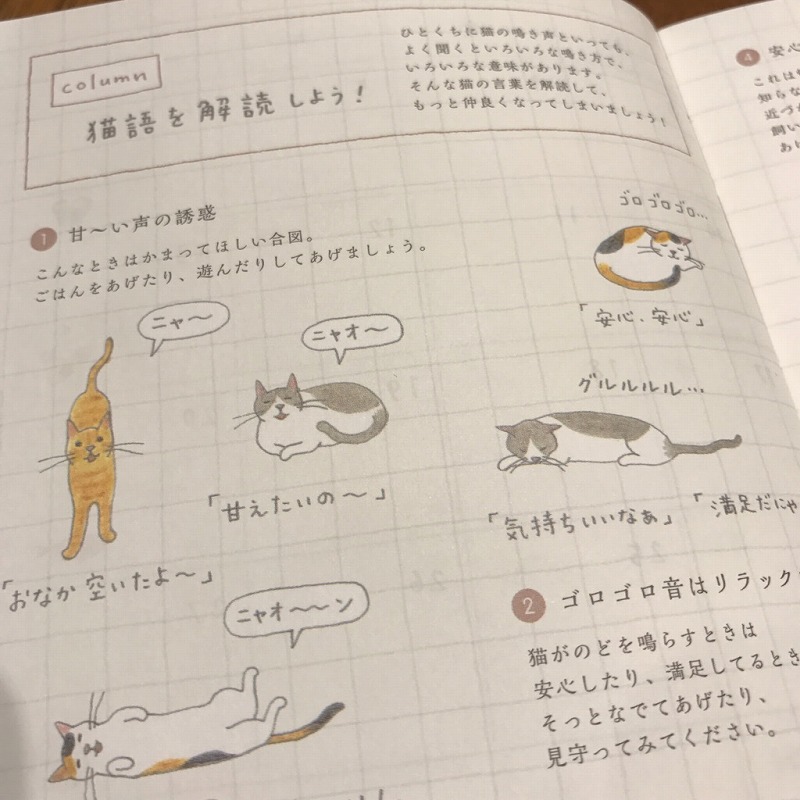 column
猫語を解読しよう!
ひとくちに猫の鳴き声といっても、
よく聞くといろいろな鳴き方で、
いろいろな意味があります。
そんな猫の言葉を解読して、
もっと仲良くなってしまいましょう!
1 甘〜い声の誘惑
こんなときはかまってほしい合図。
ごはんをあげたり、遊んだりしてあげましょう。
ニャ〜
「おなか空いたよ〜」
ニャオ〜
「甘えたいの〜」
ニャオ〜〜ン
ゴロゴロゴロ…
「安心、安心」
グルルルル…
「気持ちいいなぁ」
「満足だにゃ
2 ゴロゴロ音はリラック
猫がのどを鳴らすときは
安心したり、満足してるとき
そっとなでてあげたり、
見守ってみてください。
4 安心
これは
知らな
近づ
飼い
あげ